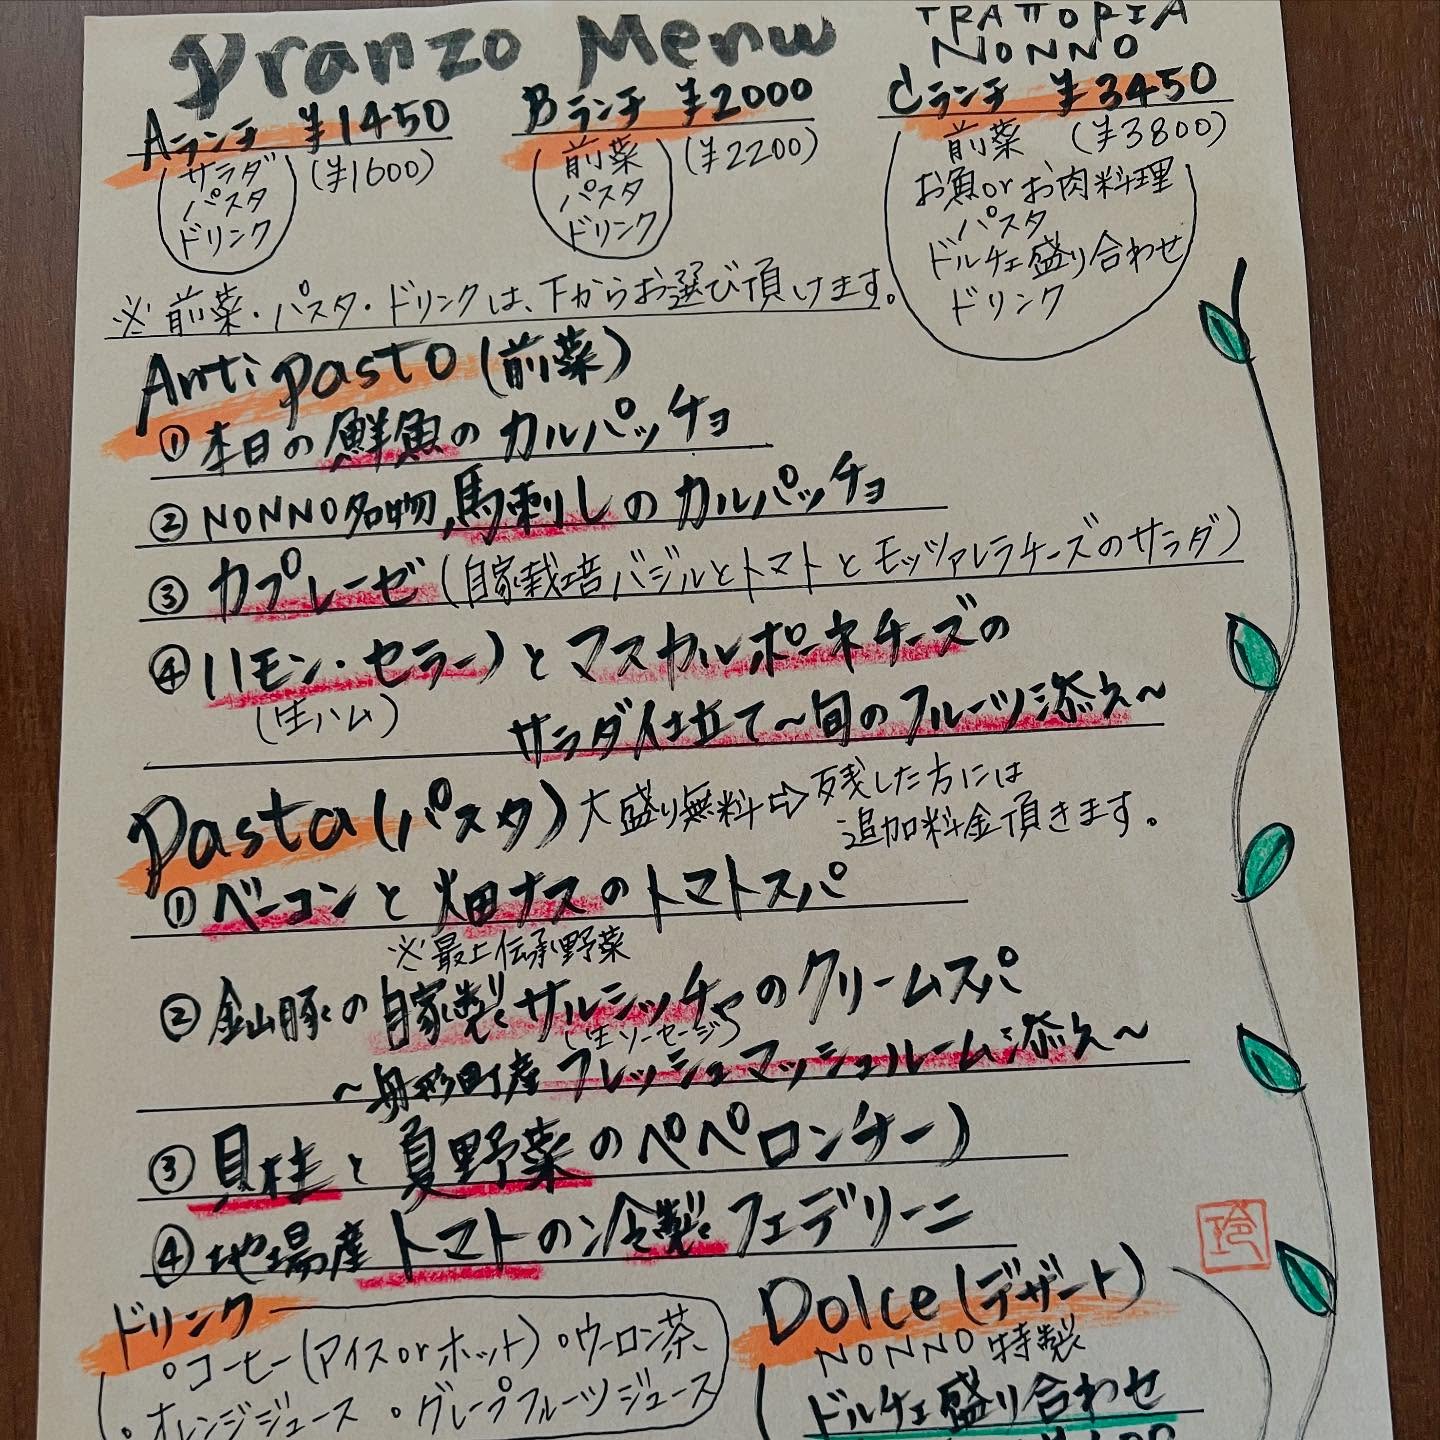 Pranzo Menu
TRATTORIA
NONNO
Aランチ ¥1450
(¥1600)
サラダ
パスタ
ドリンク
Bランチ ¥2000
(¥2200)
前菜
パスタ
ドリンク
Cランチ ¥3450
(¥3800)
前菜
お魚orお肉料理
パスタ
ドルチェ盛り合わせ
ドリンク
※前菜・パスタ・ドリンクは、下からお選び頂けます。
Antipasto(前菜)
①本日の鮮魚のカルパッチョ
②NONNO名物,馬刺しのカルパッチョ
③カプレーゼ(自家栽培バジルとトマトとモッツァレラチーズのサラダ)
④ハモン・セラーノとマスカルポーネチーズの
(生ハム)
サラダ仕立て〜旬のフルーツ添え〜
Pasta(パスタ)大盛り無料⇨残した方には
追加料金頂きます。
①ベーコンと畑ナスのトマトスパ
※最上伝承野菜
②金山豚の自家製サルシッチャのクリームスパ
(生ソーセージ)
〜舟形町産フレッシュマッシュルーム添え〜
③貝柱と夏野菜のペペロンチーノ
④地場産トマトの冷製フェデリーニ
玲
ドリンク
・コーヒー(アイスorホット)・ウーロン茶
・オレンジジュース・グレープフルーツジュース
Dolce(デザート)
NONNO特製
ドルチェ盛り合わせ